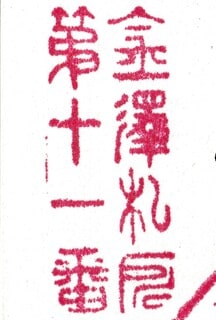 金澤札所
第十一番